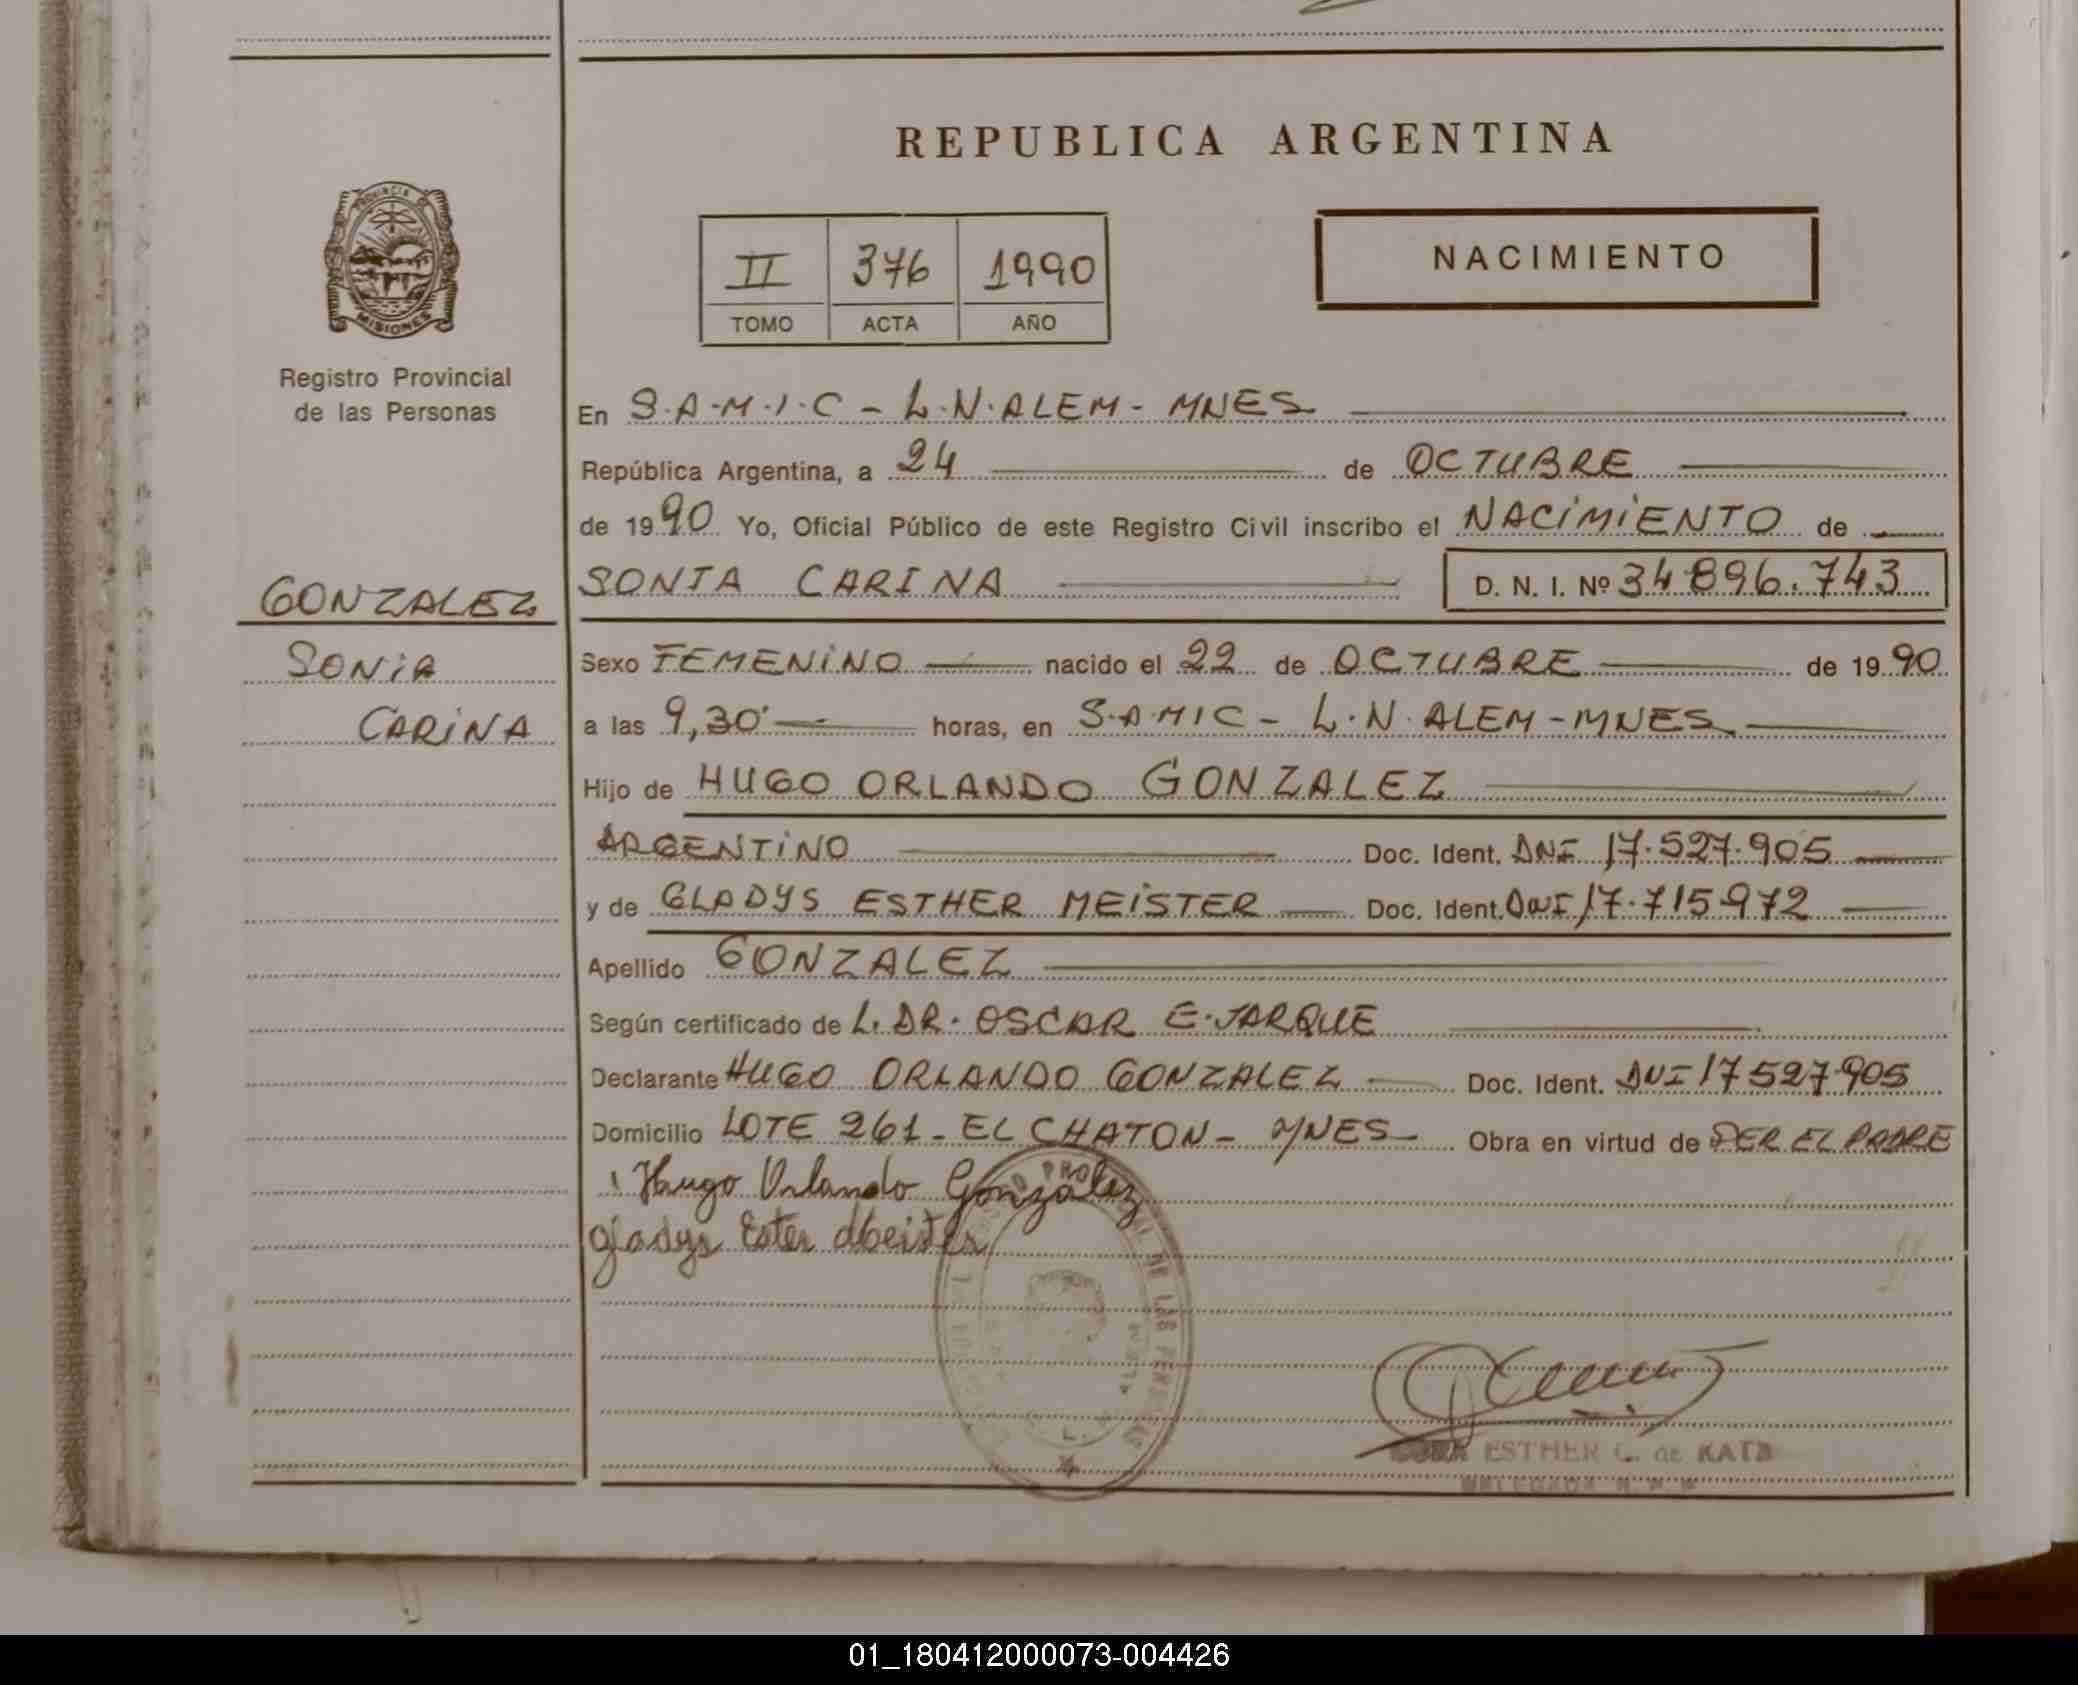 REPUBLICA ARGENTINA
PROVINCIA DE
MISIONES
Registro Provincial
de las Personas
II 376 1990
TOMO ACTA AÑO
NACIMIENTO
En S.A.M.I.C - L.N.ALEM - MNES
República Argentina, a 24 de OCTUBRE
de 1990 Yo, Oficial Público de este Registro Civil inscribo el NACIMIENTO de
GONZALEZ
SONIA CARINA D. N. I. Nº 34.896.743
SONIA
CARINA
Sexo FEMENINO nacido el 22 de OCTUBRE de 1990
a las 9,30' horas, en S.A.MIC - L.N.ALEM - MNES
Hijo de HUGO ORLANDO GONZALEZ
ARGENTINO Doc. Ident. DNI 17.527.905
y de GLADYS ESTHER MEISTER Doc. Ident. DNI 17.715972
Apellido GONZALEZ
Según certificado de L. DR. OSCAR E. JARQUE
Declarante HUGO ORLANDO GONZALEZ Doc. Ident. DNI 17527.905
Domicilio LOTE 261 - EL CHATON - MNES - Obra en virtud de SER EL PADRE
Hugo Orlando Gonzalez
Gladys Ester Meister
DE LAS PERSONAS
ESTHER C. de KATZ
01_180412000073-004426